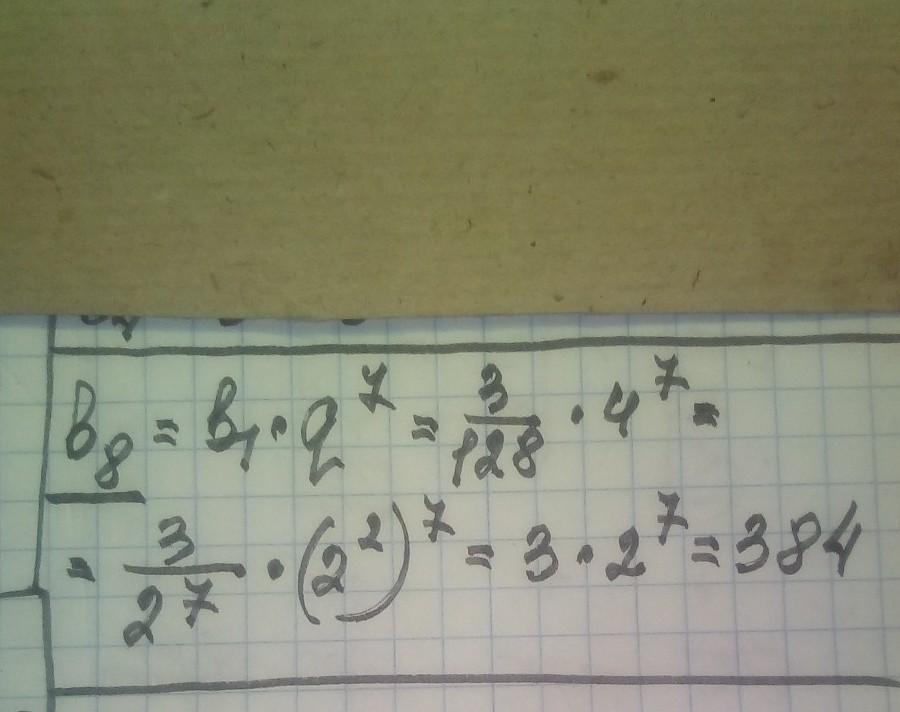 b₈ = b₁ · q⁷ = 3/128 · 4⁷ =
= 3/2⁷ · (2²)⁷ = 3 · 2⁷ = 384